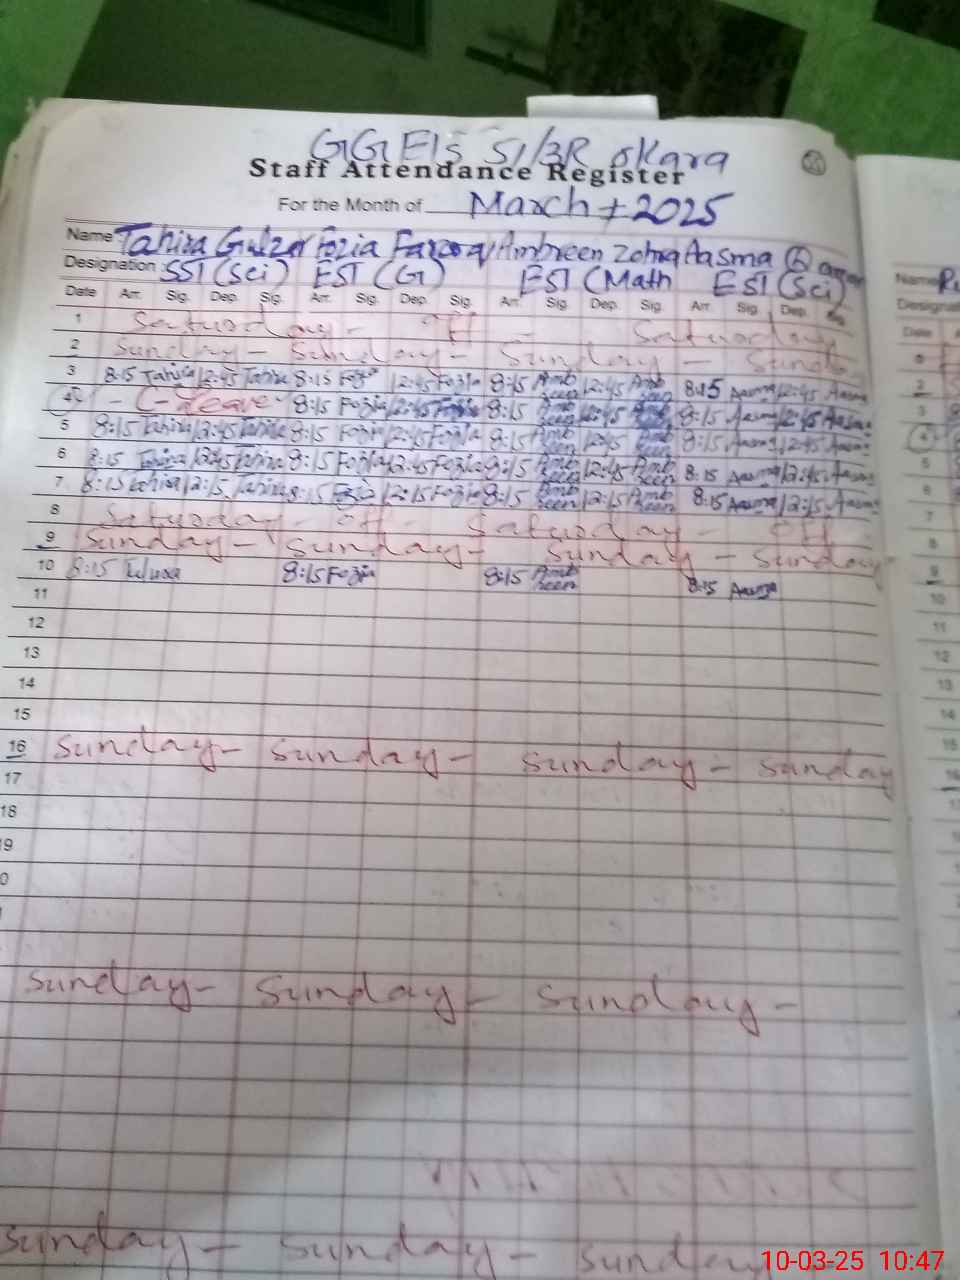 GGEls 51/3R okara
Staff Attendance Register
For the Month of March + 2025
Name Tahira Gulzar Fozia Farooq Ambreen Zohra Aasma
Designation SST (Sci) EST (G) EST (Math EST (Sci)
Date Arr. Sig. Dep. Sig. Arr. Sig. Dep. Sig. Arr. Sig. Dep. Sig. Arr. Sig. Dep.
1 Saturday - off - Saturday
2 Sunday - Sunday - Sunday - Sund
3 8:15 Tahira 12:45 Tahira 8:15 Fozia 12:45 Fozia 8:15 Amb reen 12:45 Amb reen 8:15 Aasma 12:45 Aasma
4 - C-leave - 8:15 Fozia 12:45 Fozia 8:15 Amb reen 12:45 Amb 8:15 Aasma 12:45 Aasma
5 8:15 Tahira 12:45 Tahira 8:15 Fozia 12:45 Fozia 8:15 Amb reen 12:45 Amb reen 8:15 Aasma 12:45 Aasma
6 8:15 Tahira 12:45 Tahira 8:15 Fozia 12:45 Fozia 8:15 Amb reen 12:45 Amb reen 8:15 Aasma 12:45 Aasma
7 8:15 Tahira 12:15 Tahira 8:15 Fozia 12:15 Fozia 8:15 Amb reen 12:15 Amb reen 8:15 Aasma 12:15 Aasma
8 Saturday - off - Saturday - off
9 Sunday - Sunday - Sunday - Sunday
10 8:15 8:15 Fozia 8:15 Amb reen 8:15 Aasma
11
12
13
14
15
16 Sunday - Sunday - Sunday - Sunday
17
18
9
0
Sunday - Sunday - Sunday -
Sunday - Sunday - Sunday
Name
Designa
Date
2
3
4
5
6
7
8
9
10
11
12
13
14
15
16
10-03-25 10:47